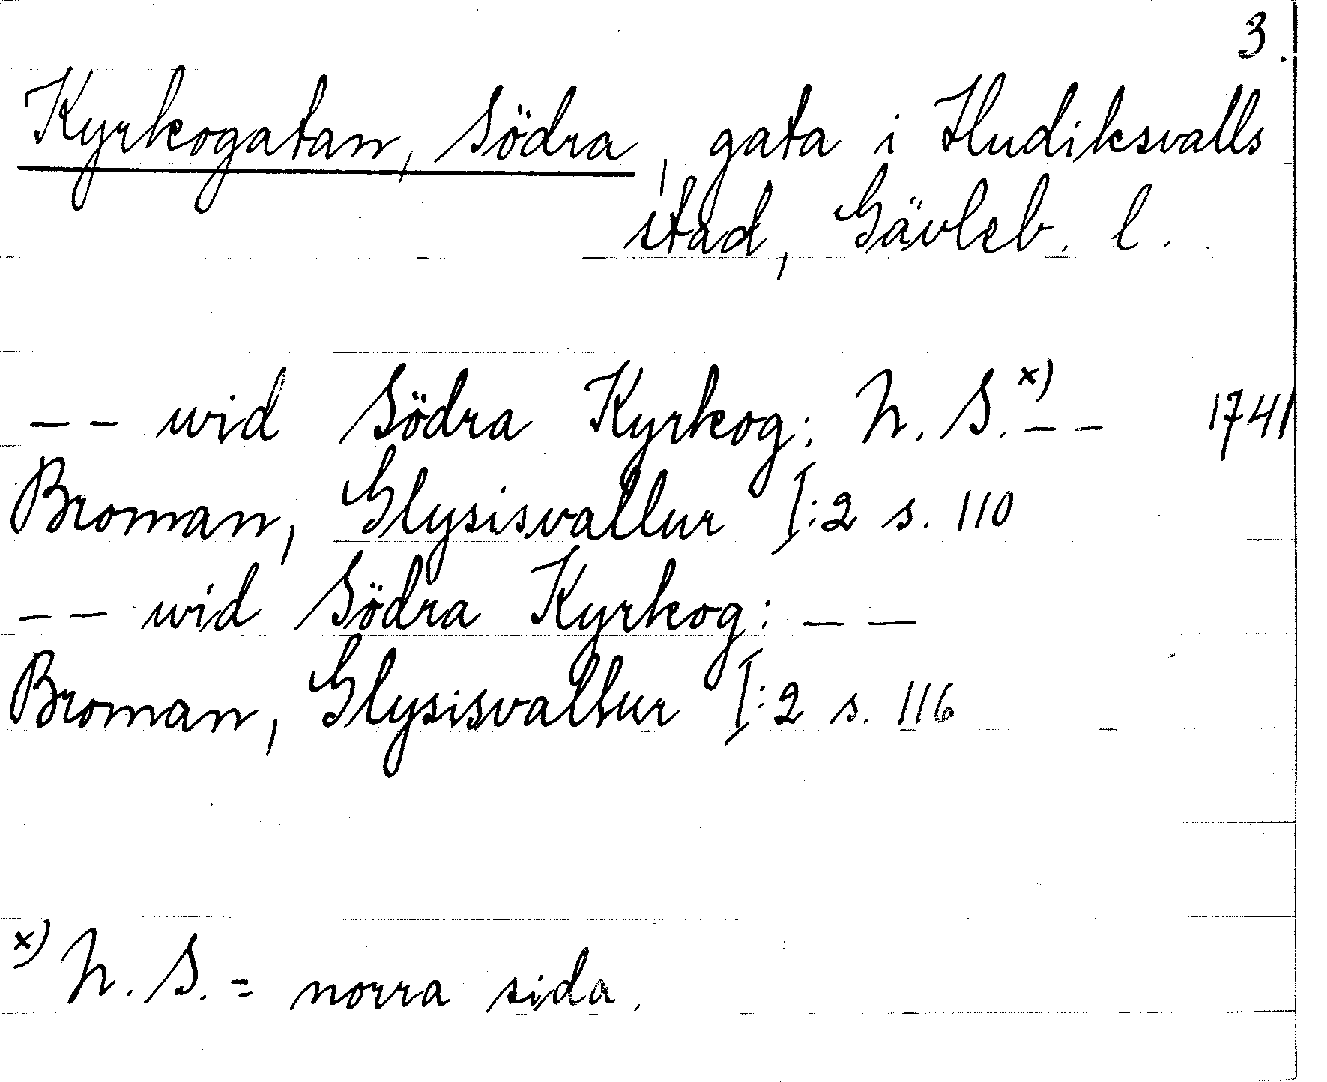 3.
Kyrkogatan, Södra, gata i Hudiksvalls
stad, Gävleb. l.
-- wid Södra Kyrkog: N. S.x) -- 1741
Broman, Glysisvallur I:2 s. 110
-- wid Södra Kyrkog: --
Broman, Glysisvallur I:2 s. 116
x) N. S. = norra sida.